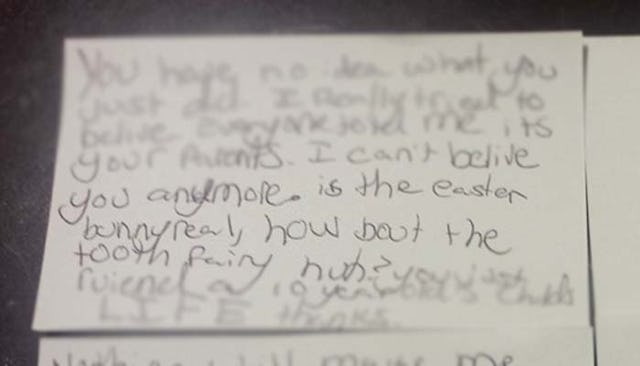 You have no idea what you
just did. I Really tryed to
belive everyone told me its
your Parents. I can't belive
you anymore. is the easter
bunny real, how bout the
tooth fairy huh? you just
ruiend a 10 year old's childs
LIFE thanks.
me